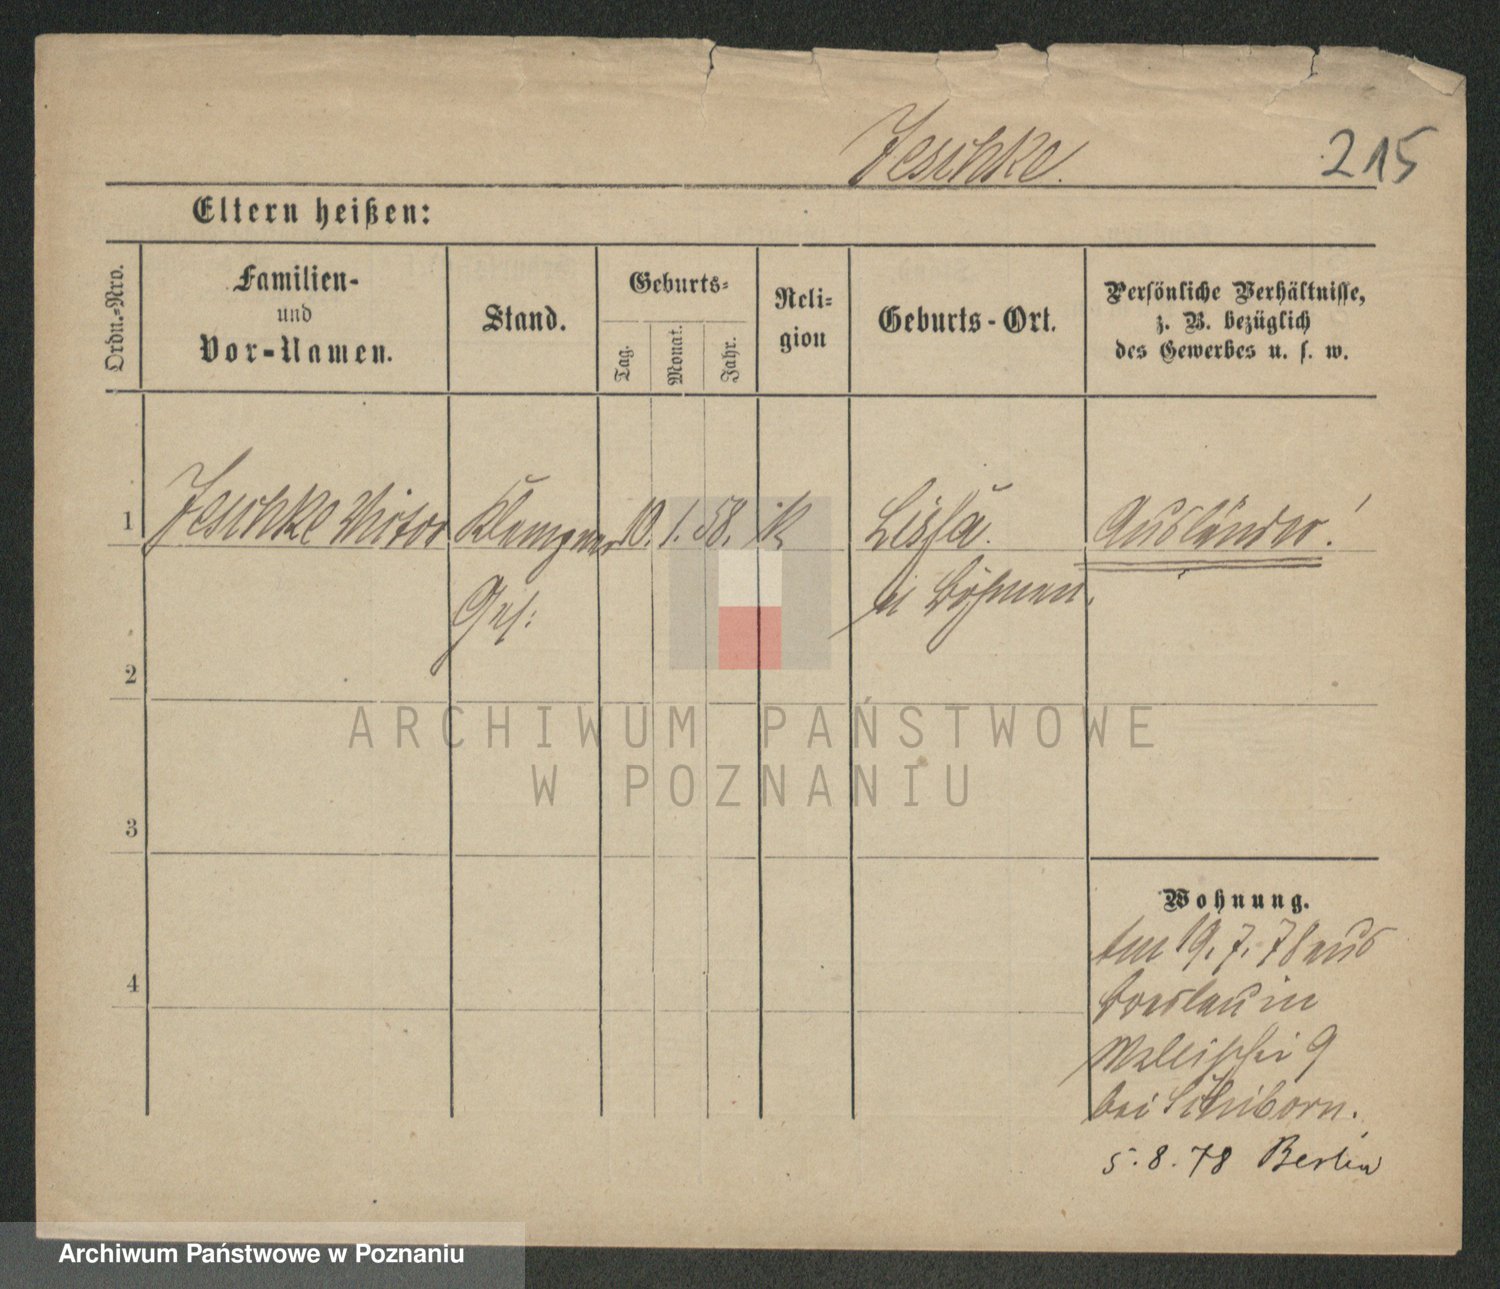 Jeschke.
215
Eltern heißen:
Ordn.-Nro.
Familien-
und
Vor-Namen.
Stand.
Geburts-
Tag.
Monat.
Jahr.
Reli-
gion
Geburts-Ort.
Persönliche Verhältnisse,
z. B. bezüglich
des Gewerbes u. s. w.
1 Jeschke Victor Klempner 10. 1. 58. k Ausländer!
Ges: in Böhmen.
2
3
4
Wohnung.
Am 19. 7. 78 aus
Breslau in
9
bei
5. 8. 78 Berlin
ARCHIWUM PAŃSTWOWE
W POZNANIU
Archiwum Państwowe w Poznaniu